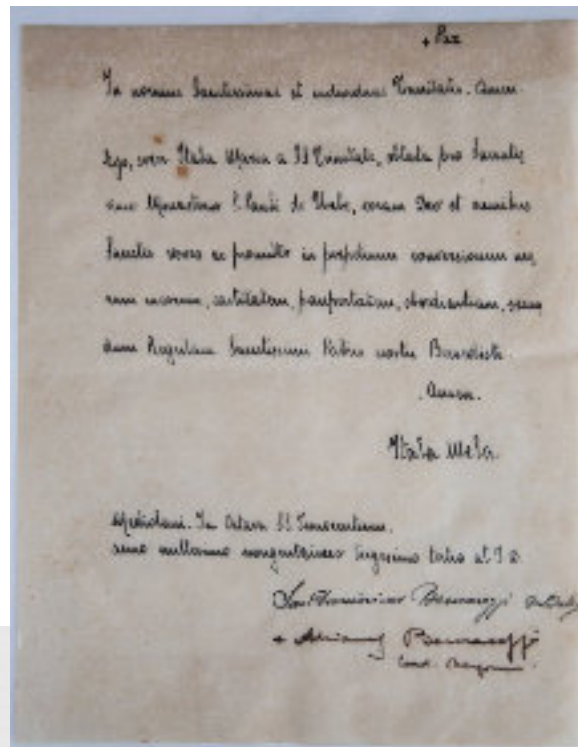 + Pax
In nomine Sanctissimae et individuae Trinitatis. Amen.
Ego, soror Itala Maria a SS Trinitate, oblata pro
Monasterio S. Pauli de Urbe, coram Deo et omnibus
Sanctis voveo ac promitto in perpetuum conversionem
meorum, castitatem, paupertatem, obedientiam, secun
dum Regulam Sanctissimi Patris nostri Benedicti.
Amen.
Itala Mela.
Mediolani. In Octava SS Innocentium.
anno millesimo nongentesimo trigesimo tertio
Bernareggi
+ Adriano Bernareggi